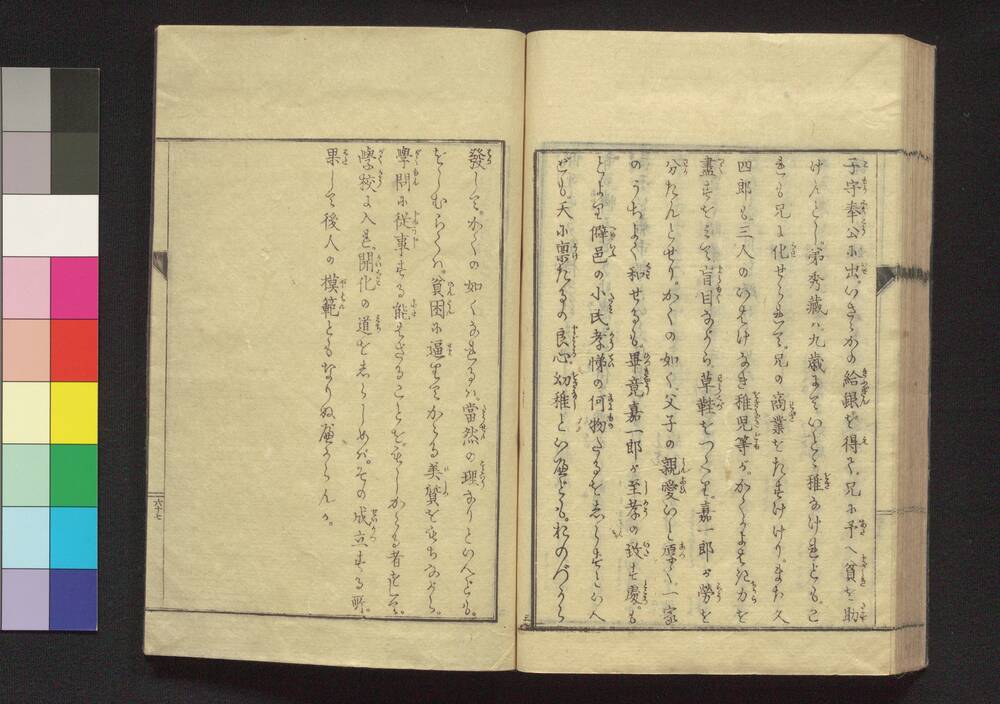 子守奉公に出。いさゝかの給銀を得て。兄に予へ貧を助
けんとし。弟秀藏ハ九歳にていとゝ稚なけれども。已
れも兄に化せられて。兄の商業をたすけけり。また久
四郎も。三人のいたいけなき稚児等が。かくよよせ力を
盡すをミて盲目ながら。草鞋をつくり。嘉一郎が勞を
分たんとせり。かくの如く。父子の親愛いと厚く。一家
のうちよく和せるも。畢竟嘉一郎が至孝の致す處。も
とより僻邑の小民孝悌の何物たるをしらずといへ
ども。天に稟たるの良心。幼稚といへども。おのづから
發して。かくの如くなれるハ。當然の理なりといへども。
をしむらくハ。貧困に逼せてかゝる美質をもちながら。
學問に從事する能はざることを。もしかゝる者をして。
學校に入れ。開化の道をしらしめバ。その成立する所。
果して後人の模範ともなりぬべからんか。
六十七